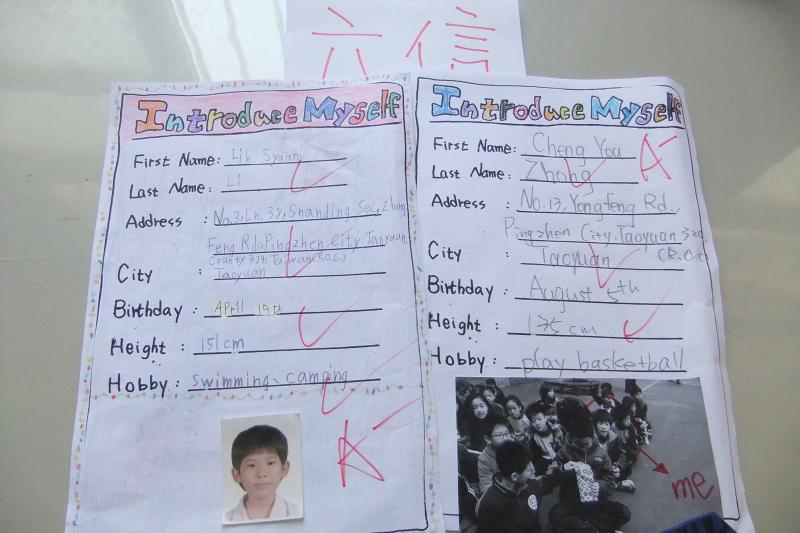 六信
Introduce Myself
First Name: Lih Syuan
Last Name: Li
Address : No.2, Ln. 38, Shanding Sec., Zhong
Feng Rd., Pingzhen City Taoyuan
County 324, Taiwan (R.O.C.)
City : Taoyuan
Birthday : April 19th
Height : 151 cm
Hobby : swimming、camping
A-
Introduce Myself
First Name: Cheng You
Last Name: Zhong
A-
Address : No. 13, Yongfeng Rd.,
Pingzhen City, Taoyuan 324
(R.O.C)
City : Taoyuan
Birthday : August 5th
Height : cm
Hobby: play basketball
me